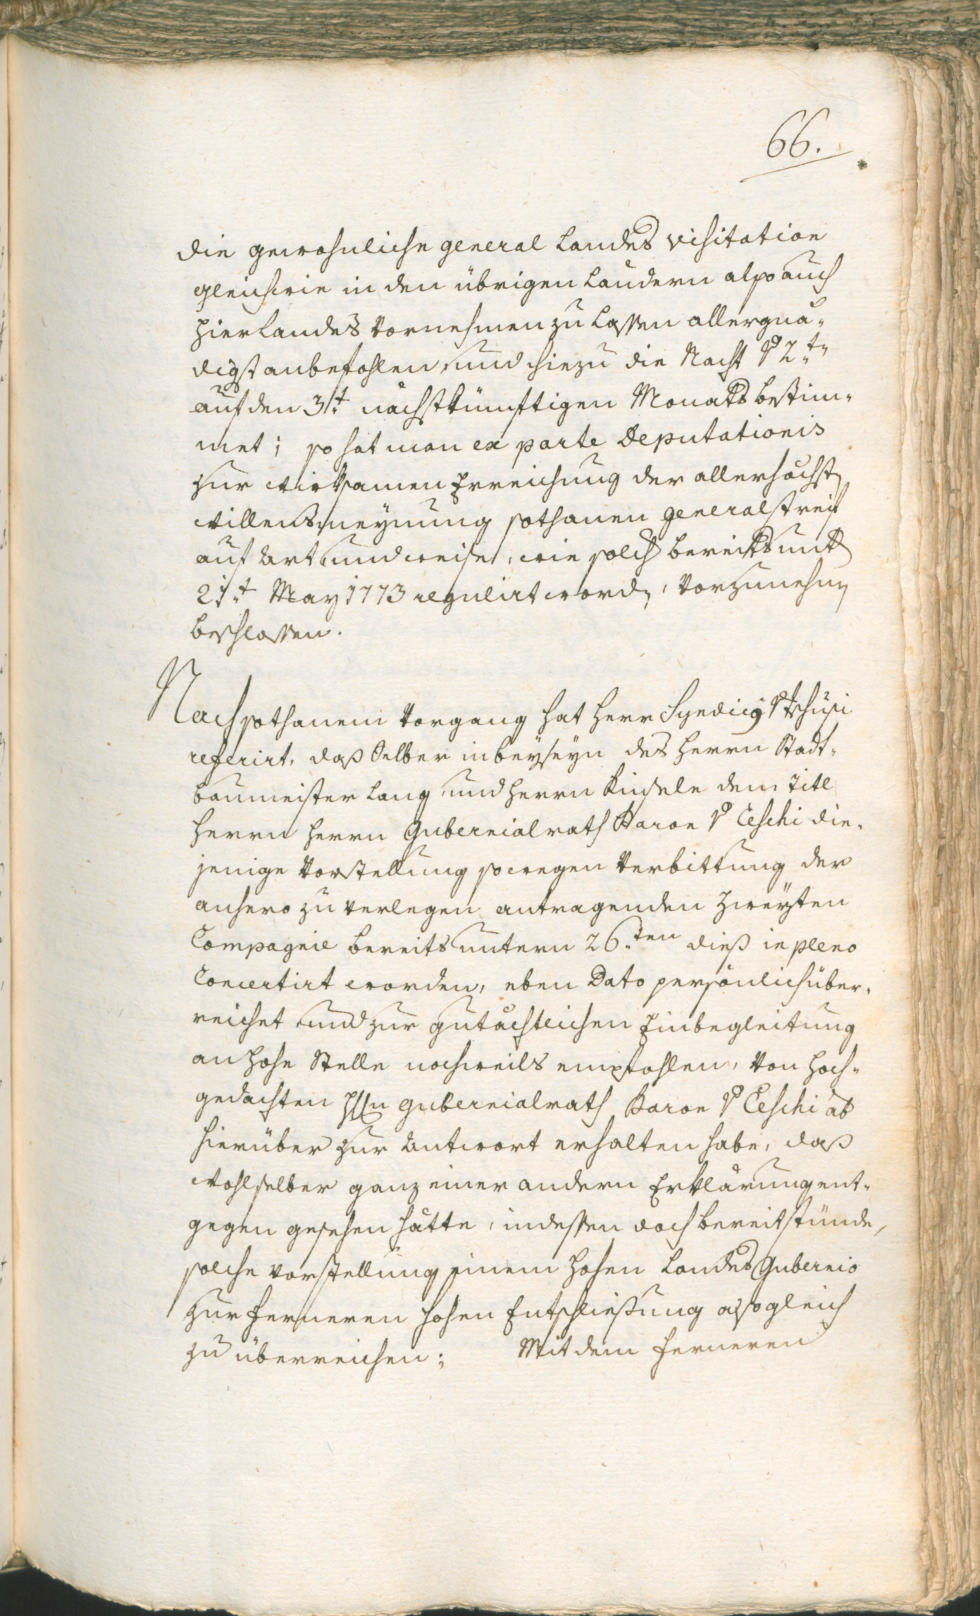 66.
die gewohnliche general Landes visitation
gleichwie in den übrigen Ländern also auch
hierlandes vornehmen zu lassen allergnä-
digst anbefohlen, und hiezu die Nacht v 2.ten
auf den 3.t nächstkünftigen Monats bestim-
met; so hat man ex parte Deputationis
zur wirksamen Erreichung der allerhöchst
willensmeynung sothanen generalstreif
auf Art und weise, wie solch bereits unt
21.t May 1773 regulirt word, vorzunehm
beschlossen.
Nach sothanem Vorgang hat Herr Syndicus v Tschusi
referirt, daß Selber in beyseyn des Herrn Stadt-
baumeister Lang und Herrn Kinsele dem Titl
Herrn Herrn Gubernialrath Baron v Ceschi die-
jenige Vorstellung so wegen Verbittung der
anhero zu verlegen antragenden Zweyten
Compagnie bereits untern 26.ten dieß in pleno
Concertirt worden, eben Dato persönlich über-
reichet und zur gutächtlichen Einbegleitung
an hohe Stelle nochweils empfohlen, von hoch-
gedachten Hrn gubernialrath Baron v Ceschi ab
hierüber zur Antwort erhalten habe, daß
wohlselber ganz einer andern Erklärung ent-
gegen gesehen hätte, indessen doch bereit stünde,
solche vorstellung einem hohen Landes Gubernio
zur ferneren hohen Entschliessung also gleich
zu überreichen; Mit dem ferneren